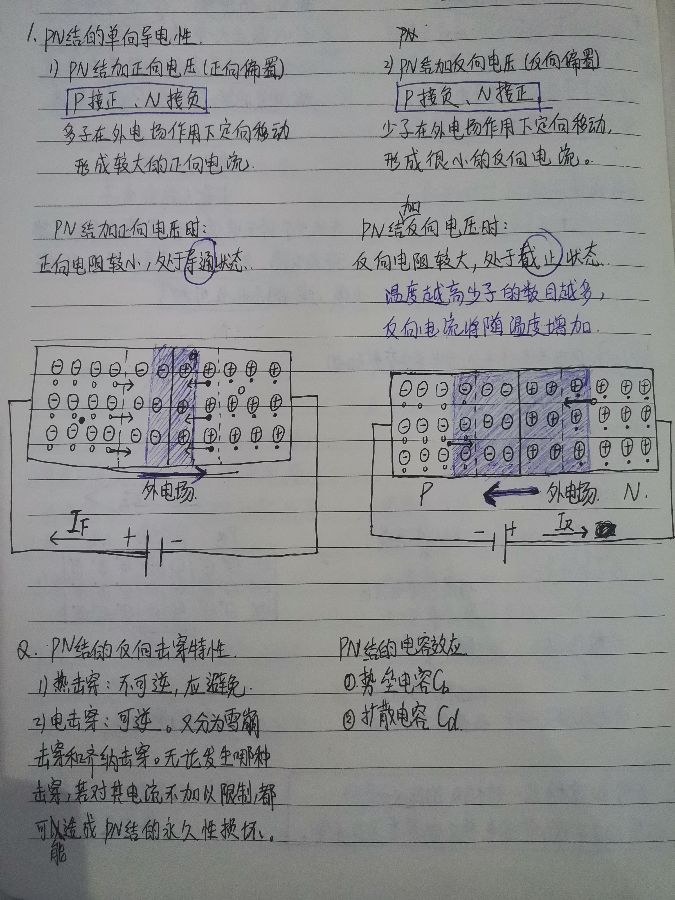 1. PN结的单向导电性.
1) PN结加正向电压(正向偏置)
P接正、N接负
多子在外电场作用下定向移动
形成较大的正向电流.
PN结加正向电压时:
正向电阻较小,处于导通状态.
PN
2) PN结加反向电压(反向偏置)
P接负、N接正
少子在外电场作用下定向移动,
形成很小的反向电流。
PN结加反向电压时:
反向电阻较大,处于截止状态.
温度越高少子的数目越多,
反向电流将随温度增加.
外电场.
IF
+ -
P 外电场. N.
- + IR
2. PN结的反向击穿特性.
1) 热击穿:不可逆,应避免.
2) 电击穿:可逆。又分为雪崩
击穿和齐纳击穿。无论发生哪种
击穿,若对其电流不加以限制,都
可能造成PN结的永久性损坏。
PN结的电容效应
①势垒电容Cb
②扩散电容Cd